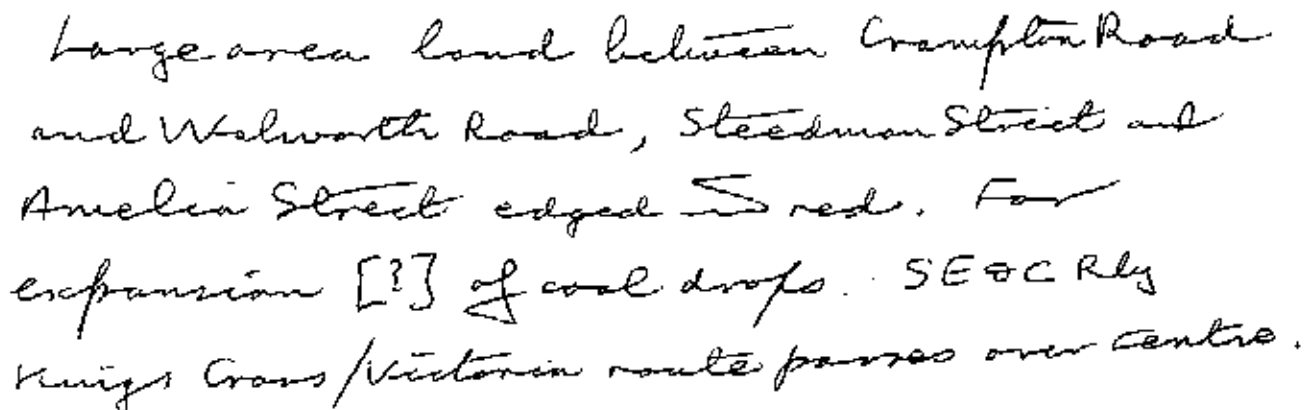 Large area land between Crampton Road
and Walworth Road, Steedman Street and
Amelia Street edged in red. For
expansion [?] of coal drops. SE&C Rly
Kings Cross/Victoria route passes over centre.